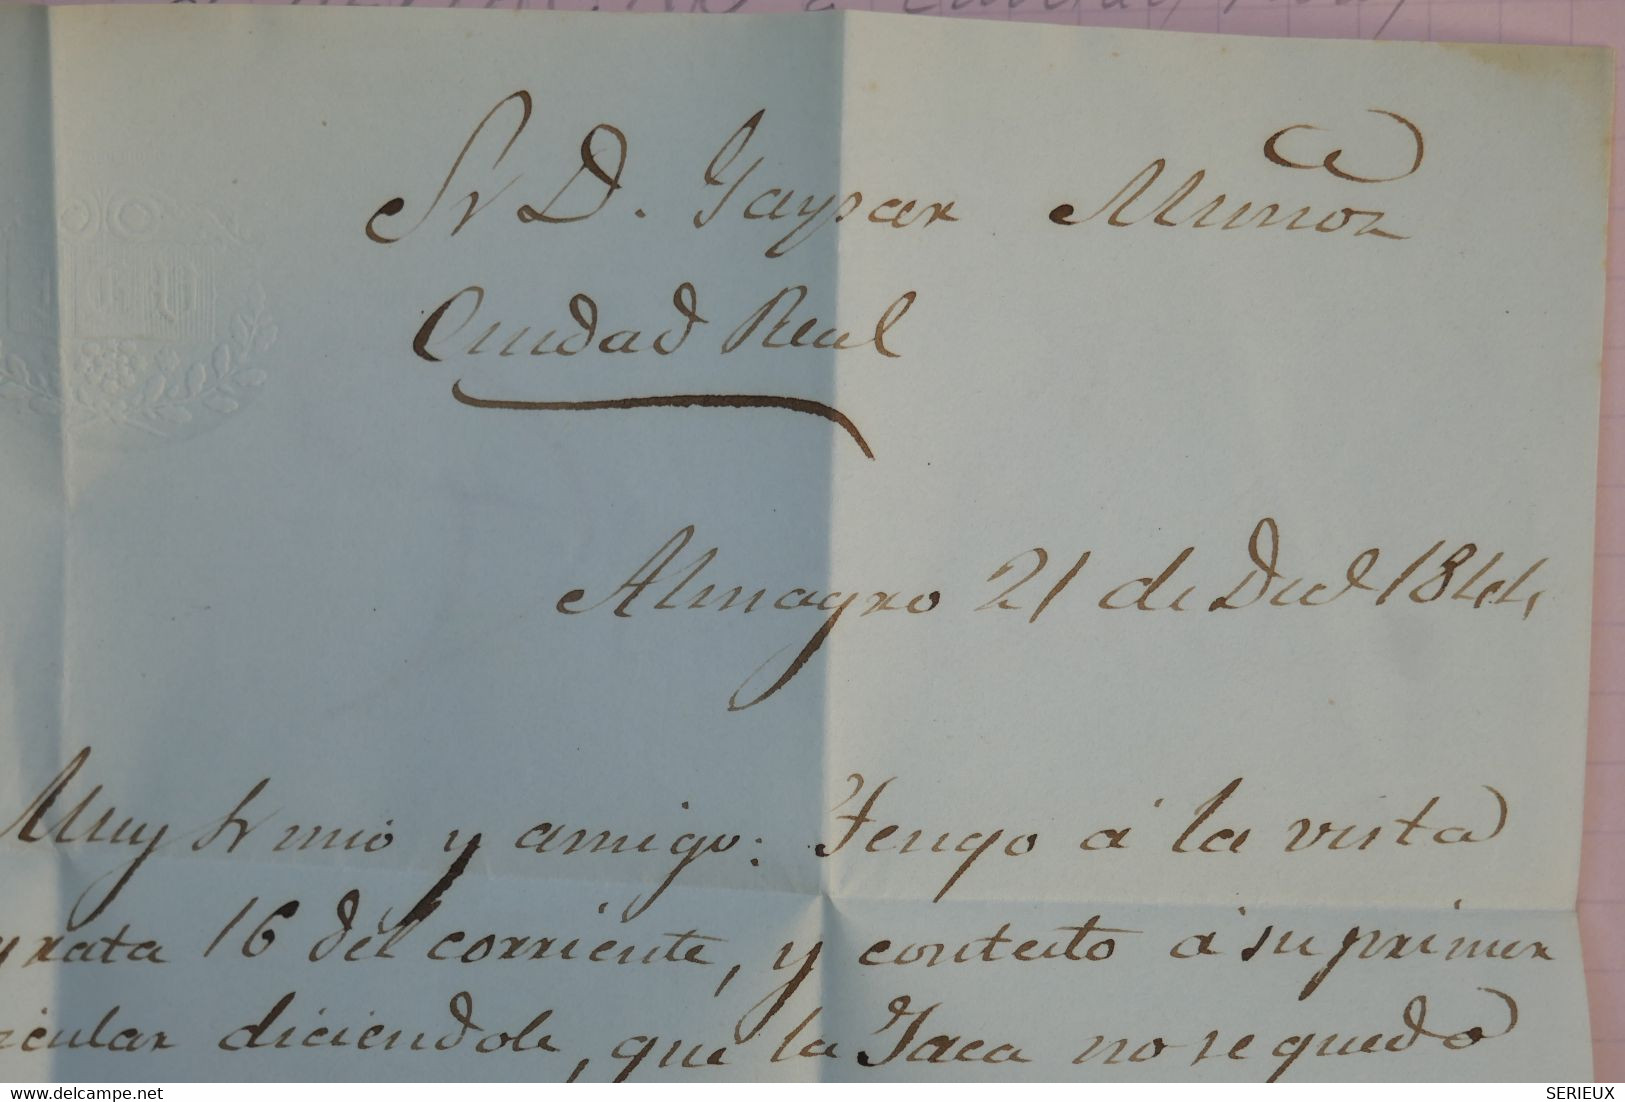 Sr D. Gaspar Muñoz
Ciudad Real
Almagro 21 de Dicl 1844
Muy Sr mio y amigo: Tengo á la vista
grata 16 del corriente, y contesto á su primer
icular diciendole, que la Jaca no se quedó
delcampe.net
SERIEUX